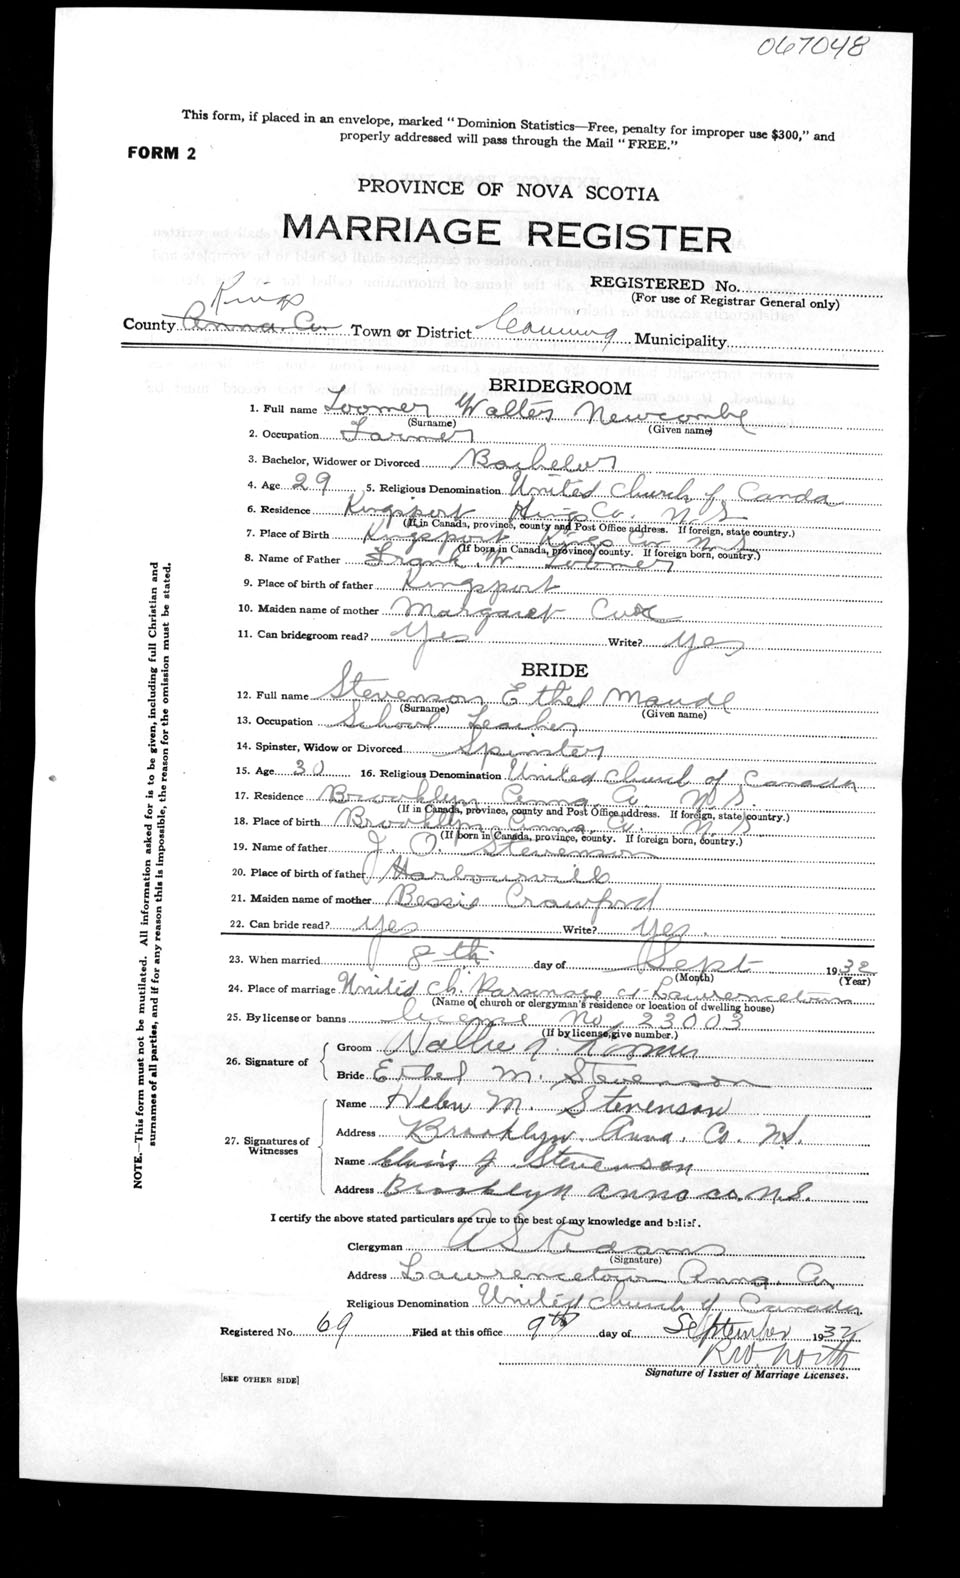 067048
This form, if placed in an envelope, marked "Dominion Statistics—Free, penalty for improper use $300," and
properly addressed will pass through the Mail "FREE."
FORM 2
PROVINCE OF NOVA SCOTIA
MARRIAGE REGISTER
REGISTERED No.
(For use of Registrar General only)
Kings
County Anna. Co Town or District Canning Municipality
BRIDEGROOM
1. Full name Loomer Walter Newcombe
(Surname) (Given name)
2. Occupation Farmer
3. Bachelor, Widower or Divorced Bachelor
4. Age 29 5. Religious Denomination United Church of Canda
6. Residence Kingsport Kings Co. N S
(If in Canada, province, county and Post Office address. If foreign, state country.)
7. Place of Birth Kingsport Kings Co N.S
(If born in Canada, province, county. If foreign born, country.)
8. Name of Father Frank W Loomer
9. Place of birth of father Kingsport
10. Maiden name of mother Margaret Cox
11. Can bridegroom read? Yes Write? Yes
BRIDE
12. Full name Stevenson Ethel Maude
(Surname) (Given name)
13. Occupation School Teacher
14. Spinster, Widow or Divorced Spinster
15. Age 30 16. Religious Denomination United Church of Canada
17. Residence Brooklyn Anna. Co. N.S.
(If in Canada, province, county and Post Office address. If foreign, state country.)
18. Place of birth Brooklyn Anna. Co. N.S
(If born in Canada, province, county. If foreign born, country.)
19. Name of father J. O. Stevenson
20. Place of birth of father Harbourville
21. Maiden name of mother Bessie Crawford
22. Can bride read? Yes Write? Yes.
23. When married 8th day of Sept 1932
(Month) (Year)
24. Place of marriage United Ch. Parsonage at Lawrencetown
(Name of church or clergyman's residence of location of dwelling house)
25. By license or banns license No. 23003
(If by license, give number.)
26. Signature of Groom Walter N. Loomer
Bride Ethel M. Stevenson
27. Signatures of Witnesses Name Helen M. Stevenson
Address Brooklyn. Anna. Co. N.S.
Name J. Stevenson
Address Brooklyn Anna Co. N.S.
I certify the above stated particulars are true to the best of my knowledge and belief.
Clergyman A S Adams
(Signature)
Address Lawrencetown Anna. Co
Religious Denomination United Church of Canada
Registered No. 69 Filed at this office 9th day of September 1932
R W North
Signature of Issuer of Marriage Licenses.
[SEE OTHER SIDE]
NOTE.—This form must not be mutilated. All information asked for is to be given, including full Christian and
surnames of all parties, and if for any reason this is impossible, the reason for the omission must be stated.